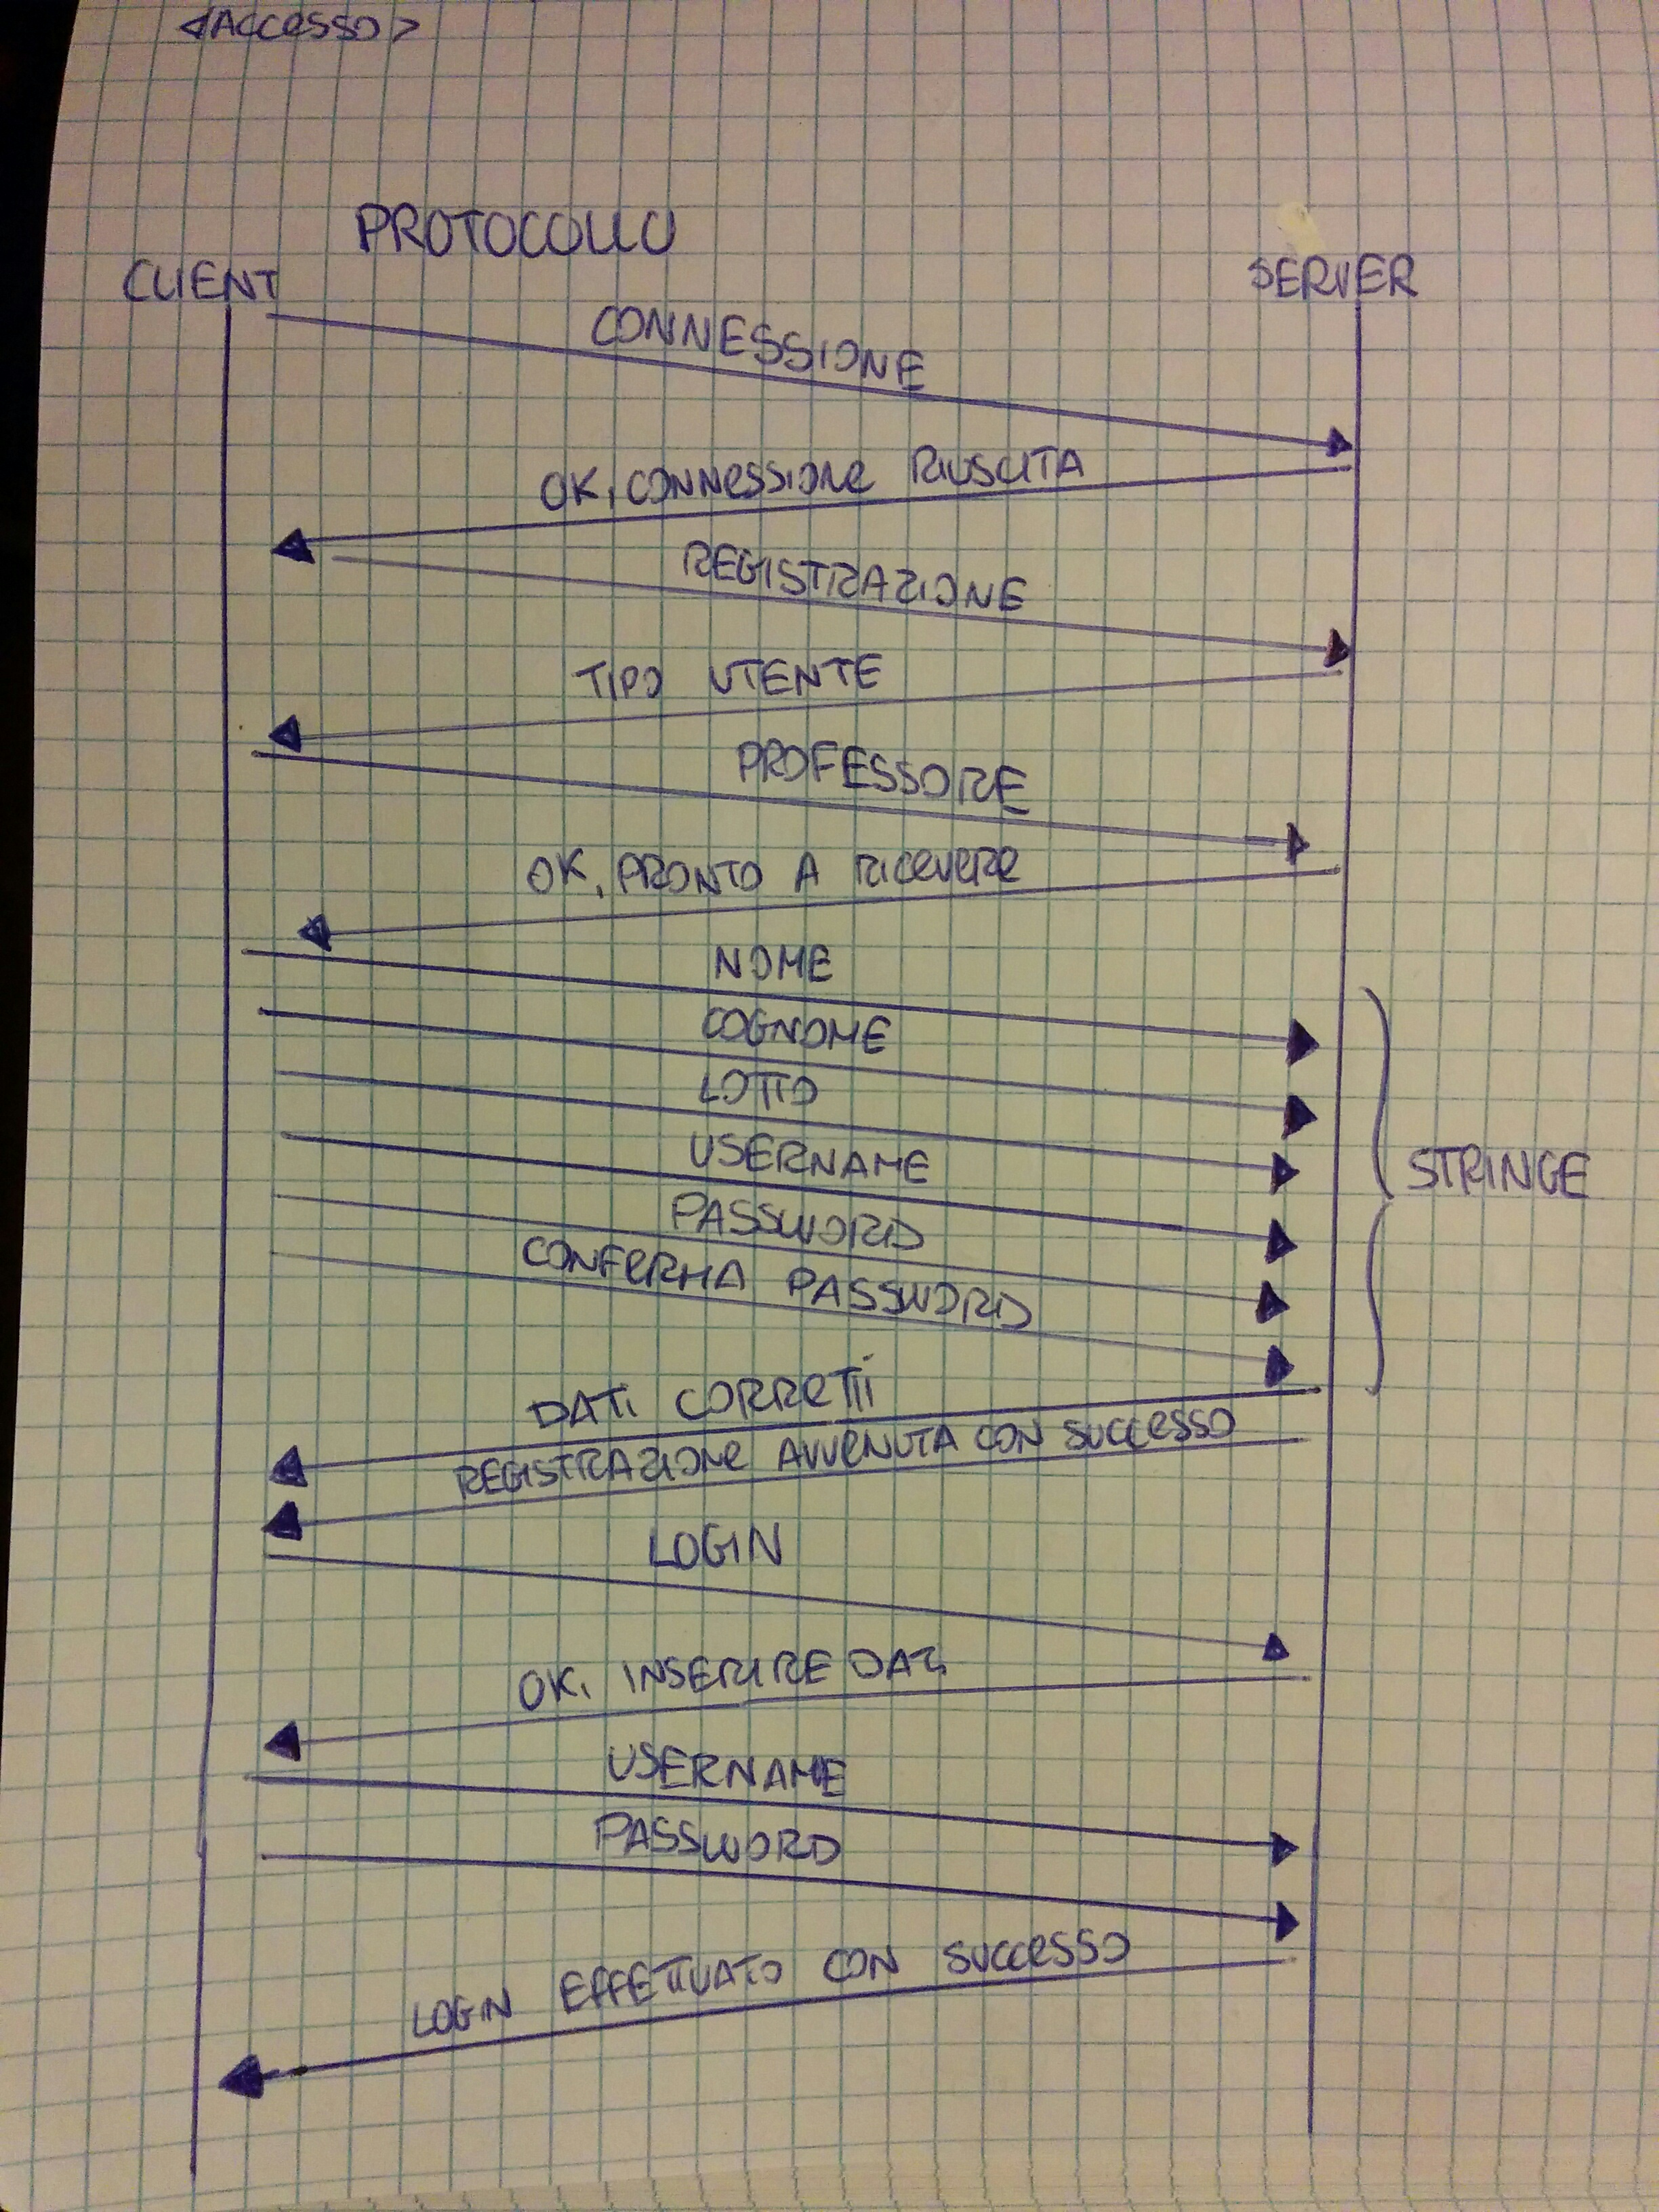 <Accesso>
PROTOCOLLO
CLIENT
SERVER
CONNESSIONE
OK, CONNESSIONE RIUSCITA
REGISTRAZIONE
TIPO UTENTE
PROFESSORE
OK, PRONTO A RICEVERE
NOME
COGNOME
LOTTO
USERNAME
STRINGE
PASSWORD
CONFERMA PASSWORD
DATI CORRETTI
REGISTRAZIONE AVVENUTA CON SUCCESSO
LOGIN
OK, INSERIRE DATI
USERNAME
PASSWORD
LOGIN EFFETTUATO CON SUCCESSO